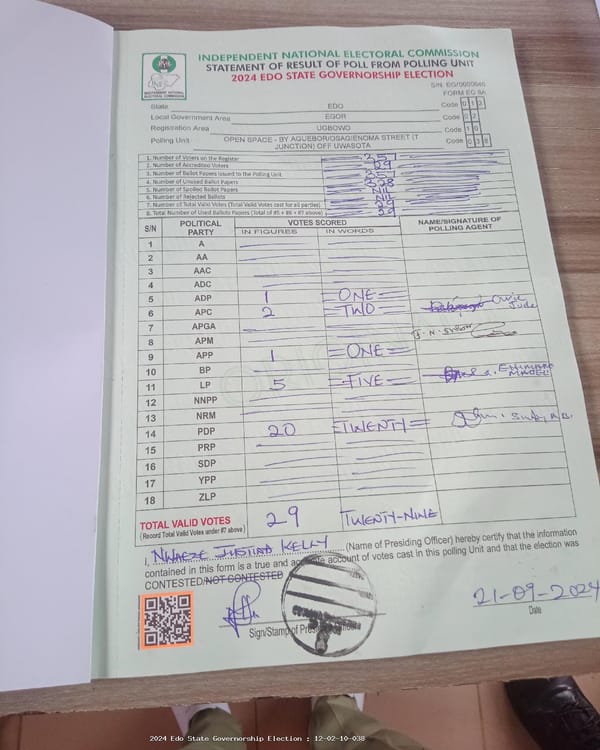 INDEPENDENT NATIONAL ELECTORAL COMMISSION
STATEMENT OF RESULT OF POLL FROM POLLING UNIT
2024 EDO STATE GOVERNORSHIP ELECTION
INDEPENDENT NATIONAL ELECTORAL COMMISSION
S/N: EG/0000646
FORM EC 8A
State EDO Code 0 1 2
Local Government Area EGOR Code 0 2
Registration Area UGBOWO Code 1 0
Polling Unit OPEN SPACE - BY AGUEBOR/OSAG/ENOMA STREET (T JUNCTION) OFF UWASOTA Code 0 3 8
1. Number of Voters on the Register 357
2. Number of Accredited Voters 29
3. Number of Ballot Papers Issued to the Polling Unit 357
4. Number of Unused Ballot Papers 328
5. Number of Spoiled Ballot Papers NIL
6. Number of Rejected Ballots NIL
7. Number of Total Valid Votes (Total Valid Votes cast for all parties) 29
8. Total Number of Used Ballots Papers (Total of #5 + #6 + #7 above) 29
S/N POLITICAL PARTY VOTES SCORED NAME/SIGNATURE OF POLLING AGENT
IN FIGURES IN WORDS
1 A
2 AA
3 AAC
4 ADC
5 ADP 1 ONE
6 APC 2 TWO Jude
7 APGA
8 APM
9 APP 1 ONE
10 BP
11 LP 5 FIVE
12 NNPP
13 NRM
14 PDP 20 TWENTY
15 PRP
16 SDP
17 YPP
18 ZLP
TOTAL VALID VOTES 29 TWENTY-NINE
(Record Total Valid Votes under #7 above)
I, KELLY (Name of Presiding Officer) hereby certify that the information
contained in this form is a true and account of votes cast in this polling Unit and that the election was
CONTESTED/NOT CONTESTED
21-09-2024
Sign/Stamp of Date
2024 Edo State Governorship Election : 12-02-10-038